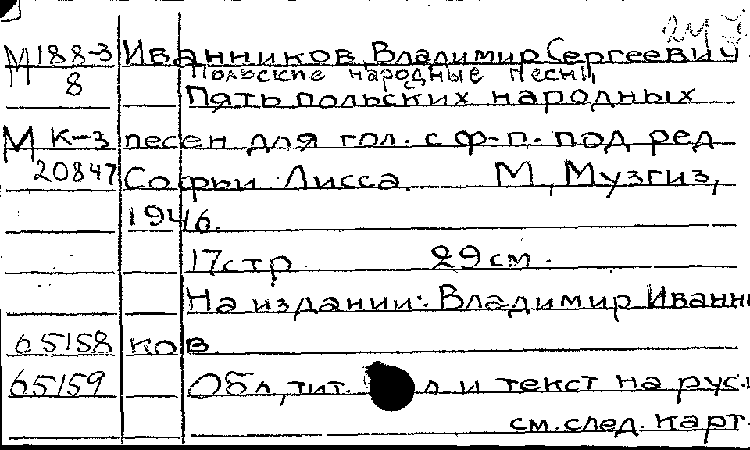 247
М 188-3 Иванников, Владимир Сергеевич.
8 Польские народные песни,
Пять польских народных
М К-3 песен для гол. с ф-п. под ред
20847 Софьи Лисса. М, Музгиз,
1946.
17 стр 29 см.
На издании: Владимир Иванни
65158 ков.
65159 Обл, тит. л и текст на рус.
см. след. карт.